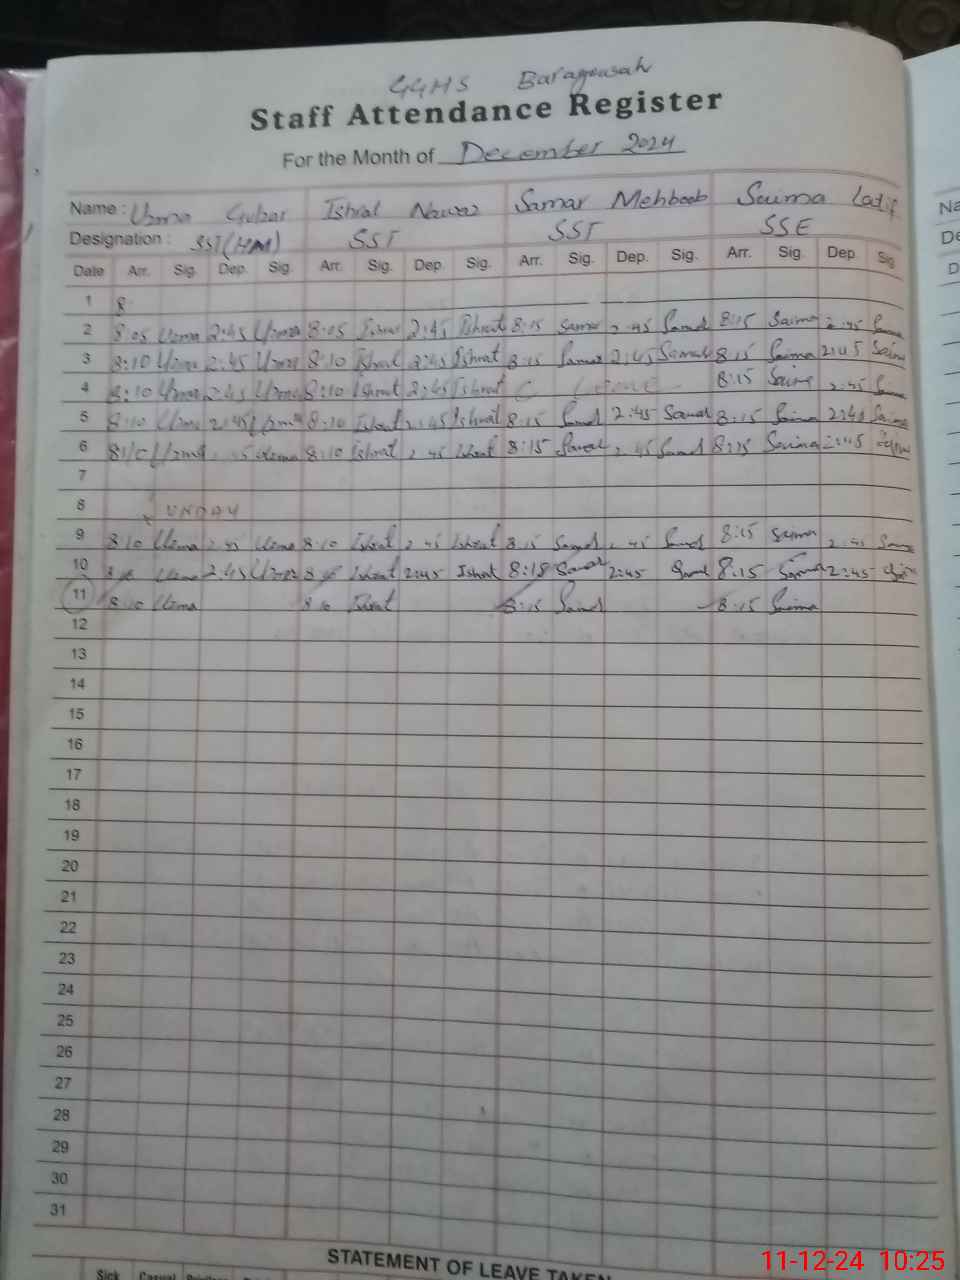 GGHS
Staff Attendance Register
For the Month of December 2024
Name : Uzma Gulzar Ishrat Nawaz Samar Mehboob Saima Latif
Designation : SST(HM) SST SST SSE
Date Arr. Sig. Dep. Sig. Arr. Sig. Dep. Sig. Arr. Sig. Dep. Sig. Arr. Sig. Dep. Sig
1 8
2 8:05 Uzma 2:45 Uzma 8:05 Ishrat 2:45 Ishrat 8:15 Samar 2:45 Samar 8:15 Saima 2:45 Saima
3 8:10 Uzma 2:45 Uzma 8:10 Ishrat 2:45 Ishrat 8:15 Samar 2:45 Samar 8:15 Saima 2:45 Saima
4 8:10 Uzma 2:45 Uzma 8:10 Ishrat 2:45 Ishrat C Leave 8:15 Saima 2:45 Saima
5 8:10 Uzma 2:45 Uzma 8:10 Ishrat 2:45 Ishrat 8:15 Samar 2:45 Samar 8:15 Saima 2:45 Saima
6 8:10 Uzma 2:45 Uzma 8:10 Ishrat 2:45 Ishrat 8:15 Samar 2:45 Samar 8:15 Saima 2:45
7
8 SUNDAY
9 8:10 Uzma 2:45 Uzma 8:10 Ishrat 2:45 Ishrat 8:15 Samar 2:45 Samar 8:15 Saima 2:45 Saima
10 Uzma 2:45 Uzma Ishrat 2:45 Ishrat 8:15 Samar 2:45 Samar 8:15 Saima 2:45 Saima
11 8:10 Uzma 8:10 Ishrat 8:15 Samar 8:15 Saima
12
13
14
15
16
17
18
19
20
21
22
23
24
25
26
27
28
29
30
31
STATEMENT OF LEAVE TAKEN
Sick Casual
11-12-24 10:25